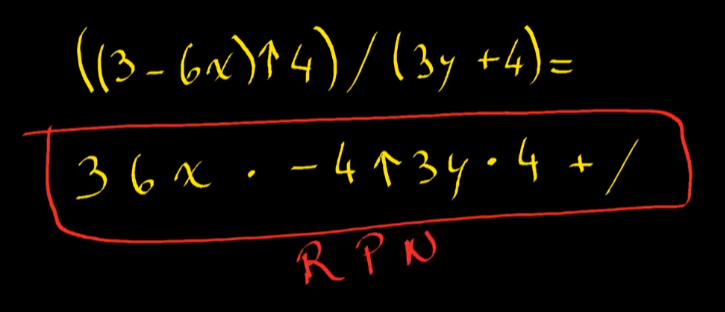 ((3-6x)↑4)/(3y+4)=
3 6 x · - 4 ↑ 3 y · 4 + /
RPN